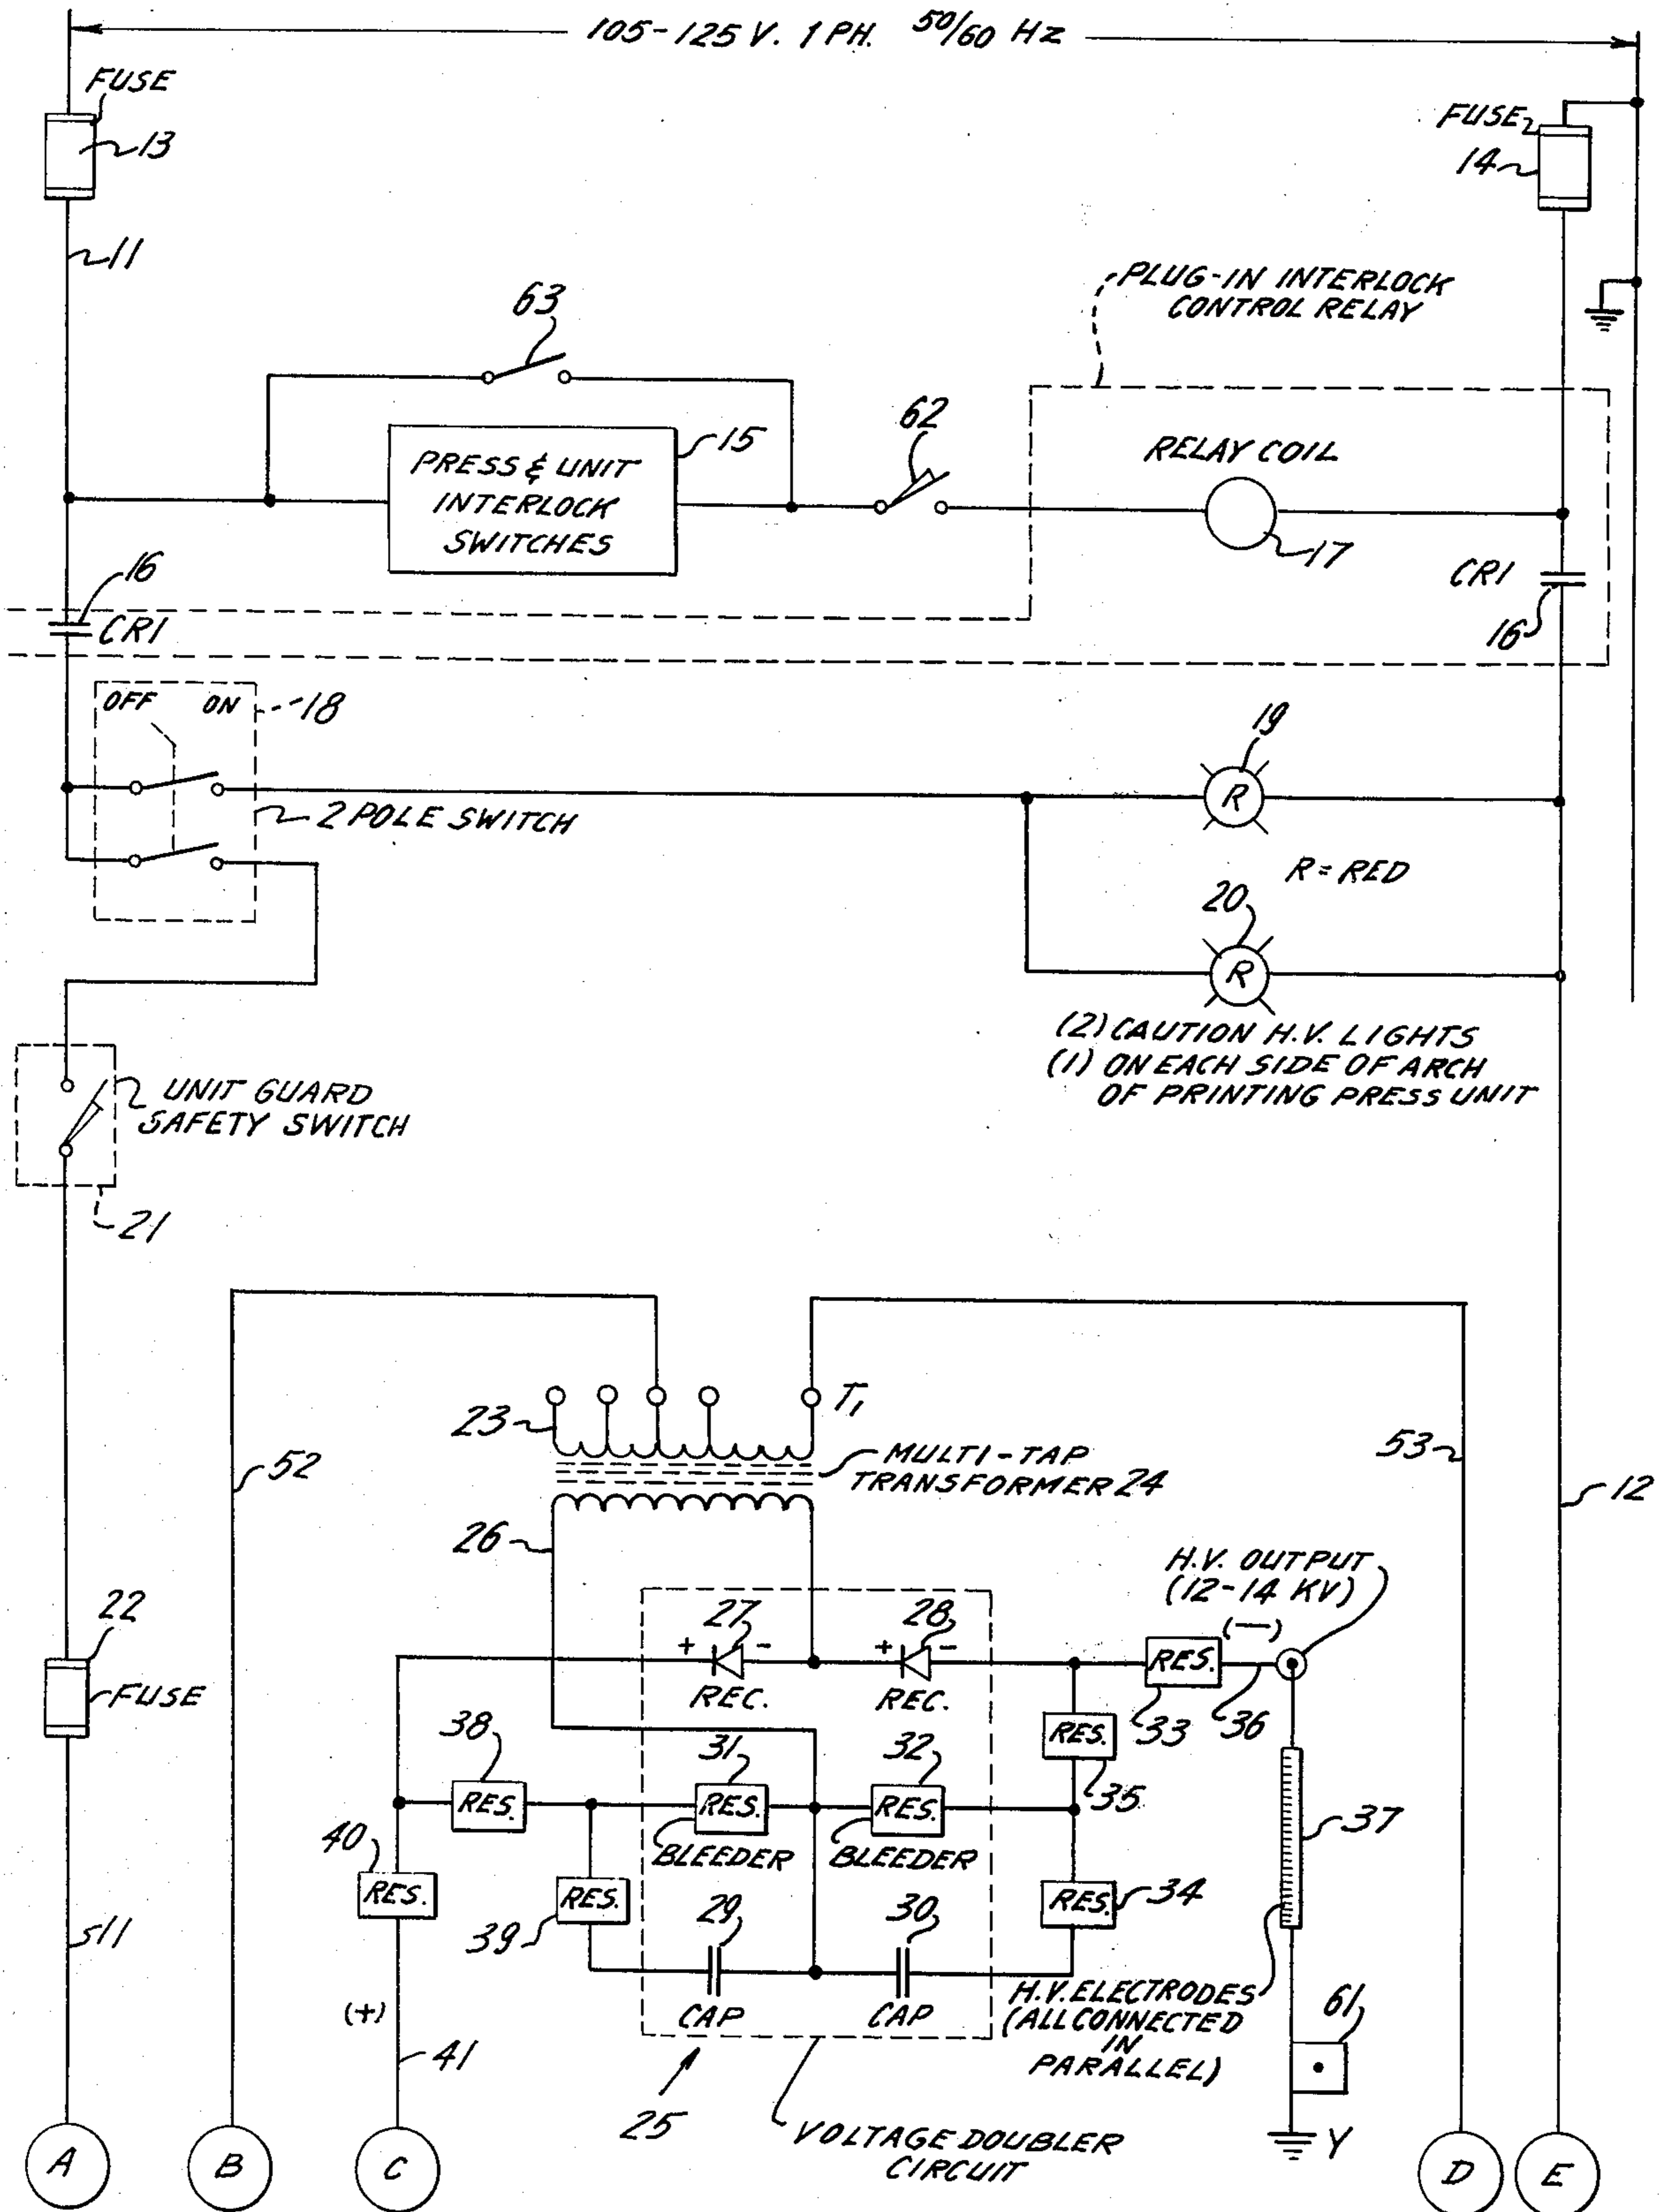 105-125 V. 1 PH. 50/60 Hz
FUSE
13
FUSE
14
11
PLUG-IN INTERLOCK
CONTROL RELAY
63
62
15
PRESS & UNIT
INTERLOCK
SWITCHES
RELAY COIL
17
16
CR1
CR1
16
OFF ON
18
19
R
2 POLE SWITCH
R = RED
20
R
(2) CAUTION H.V. LIGHTS
(1) ON EACH SIDE OF ARCH
OF PRINTING PRESS UNIT
UNIT GUARD
SAFETY SWITCH
21
T1
23
MULTI-TAP
TRANSFORMER 24
52
53
12
26
H.V. OUTPUT
(12-14 KV)
(-)
22
FUSE
+ 27 -
REC.
+ 28 -
REC.
RES.
33
36
38
RES.
31
RES.
BLEEDER
32
RES.
BLEEDER
RES.
35
37
40
RES.
RES.
39
29
CAP
30
CAP
RES.
34
11
(+)
41
H.V. ELECTRODES
(ALL CONNECTED
IN
PARALLEL)
61
25
VOLTAGE DOUBLER
CIRCUIT
Y
A
B
C
D
E